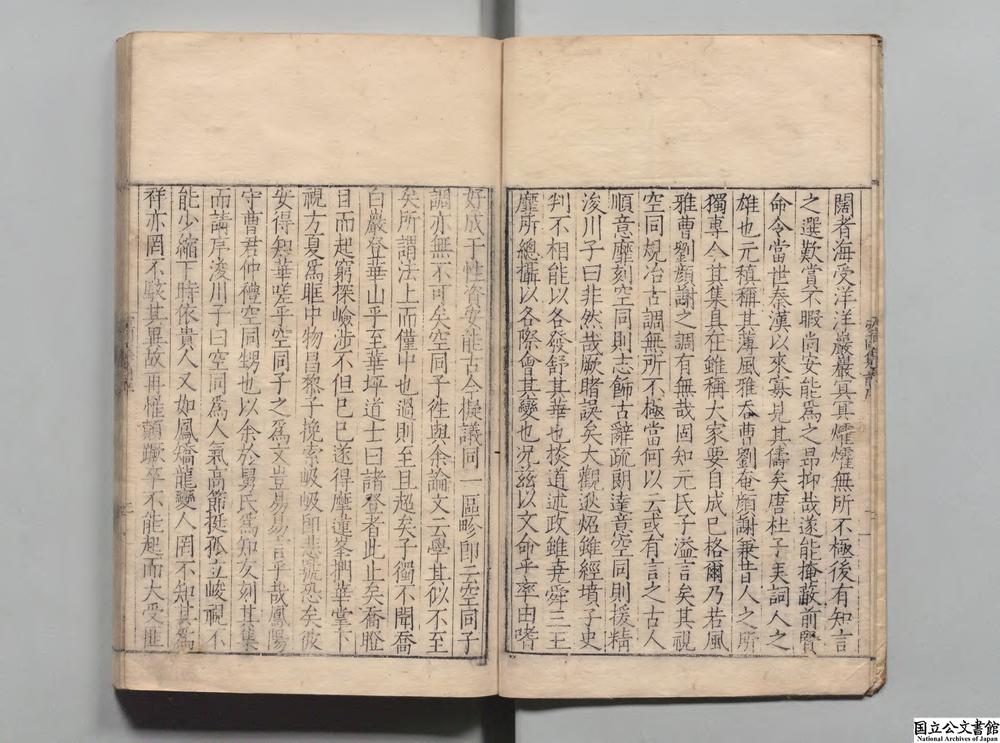 闊者海受洋洋巖巖冥冥燿燿無所不極後有知言
之選歎賞不暇尚安能爲之昂抑哉遂能掩蔽前賢
命令當世秦漢以來寡見其儔矣唐杜子美詞人之
雄也元稹稱其薄風雅吞曹劉奄顔謝兼昔人之所
獨專今其集具在雖稱大家要自成已格爾乃若風
雅曹劉顔謝之調有無哉固知元氏子溢言矣其視
空同規冶古調無所不極當何以云或有言之古人
順意靡刻空同則志飾古辭疏朗達意空同則援精
浚川子曰非然哉厥賭誤矣大觀逖炤雖經墳子史
判不相能以各發舒其華也棪道述政雖堯舜三王
靡所總攝以各際會其變也况兹以文命乎率由嗜
好成于性資安能古今擬議同一區畛即云空同子
調亦無不可矣空同子徃與余論文云學其似不至
矣所謂法上而僅中也過則至且超矣子獨不聞喬
白巖登華山乎至華坪道士曰諸登者此止矣喬瞪
目而起窮探嶮涉不但已已遂得摩蓮峯捫華掌下
視方夏爲眶中物昌黎子挽索岋岋師悲號恐矣彼
安得知華嗟乎空同子之爲文豈易易言乎哉鳳陽
守曹君仲禮空同甥也以余於舅氏爲知友刻其集
而請序浚川子曰空同爲人氣高節挺孤立峻視不
能少縮下時依貴人又如鳳矯龍變人罔不知其爲
祥亦罔不駭其異故再懽顛蹶卒不能起而大受匪
国立公文書館
National Archives of Japan